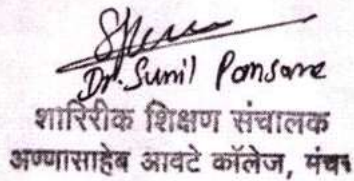 Dr. Sunil Pansare
शारिरीक शिक्षण संचालक
अण्णासाहेब आवटे कॉलेज, मंचर